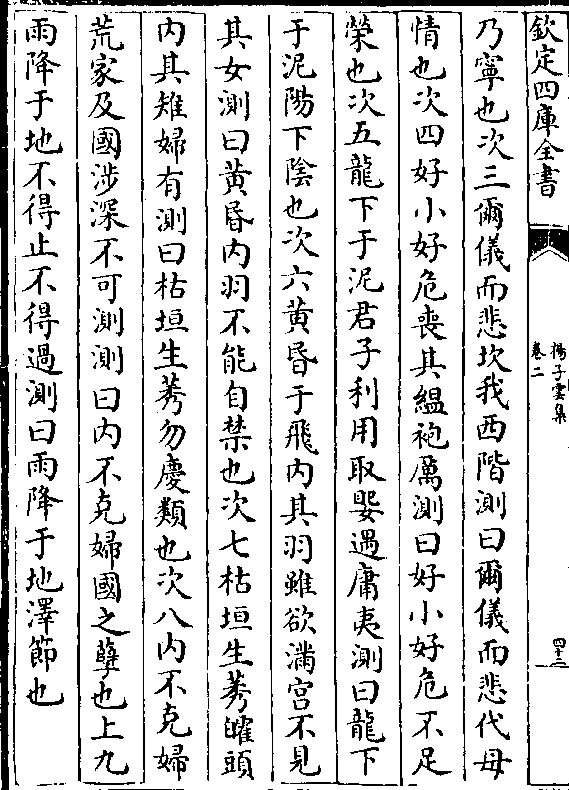 欽定四庫全書
揚子雲集
卷二
四十三
乃寧也次三爾儀而悲坎我西階測曰爾儀而悲代母
情也次四好小好危喪其緼袍厲測曰好小好危不足
榮也次五龍下于泥君子利用取嬰遇庸夷測曰龍下
于泥陽下陰也次六黄昏于飛内其羽雖欲滿宫不見
其女測曰黄昏内羽不能自禁也次七枯垣生莠皬頭
内其雉婦有測曰枯垣生莠勿慶類也次八内不克婦
荒家及國涉深不可測測曰内不克婦國之孽也上九
雨降于地不得止不得過測曰雨降于地澤節也